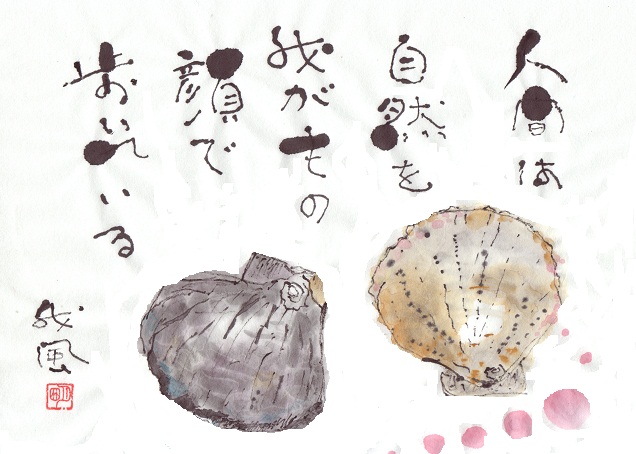 人間は
自然を
我がもの
顔で
歩いている
我風